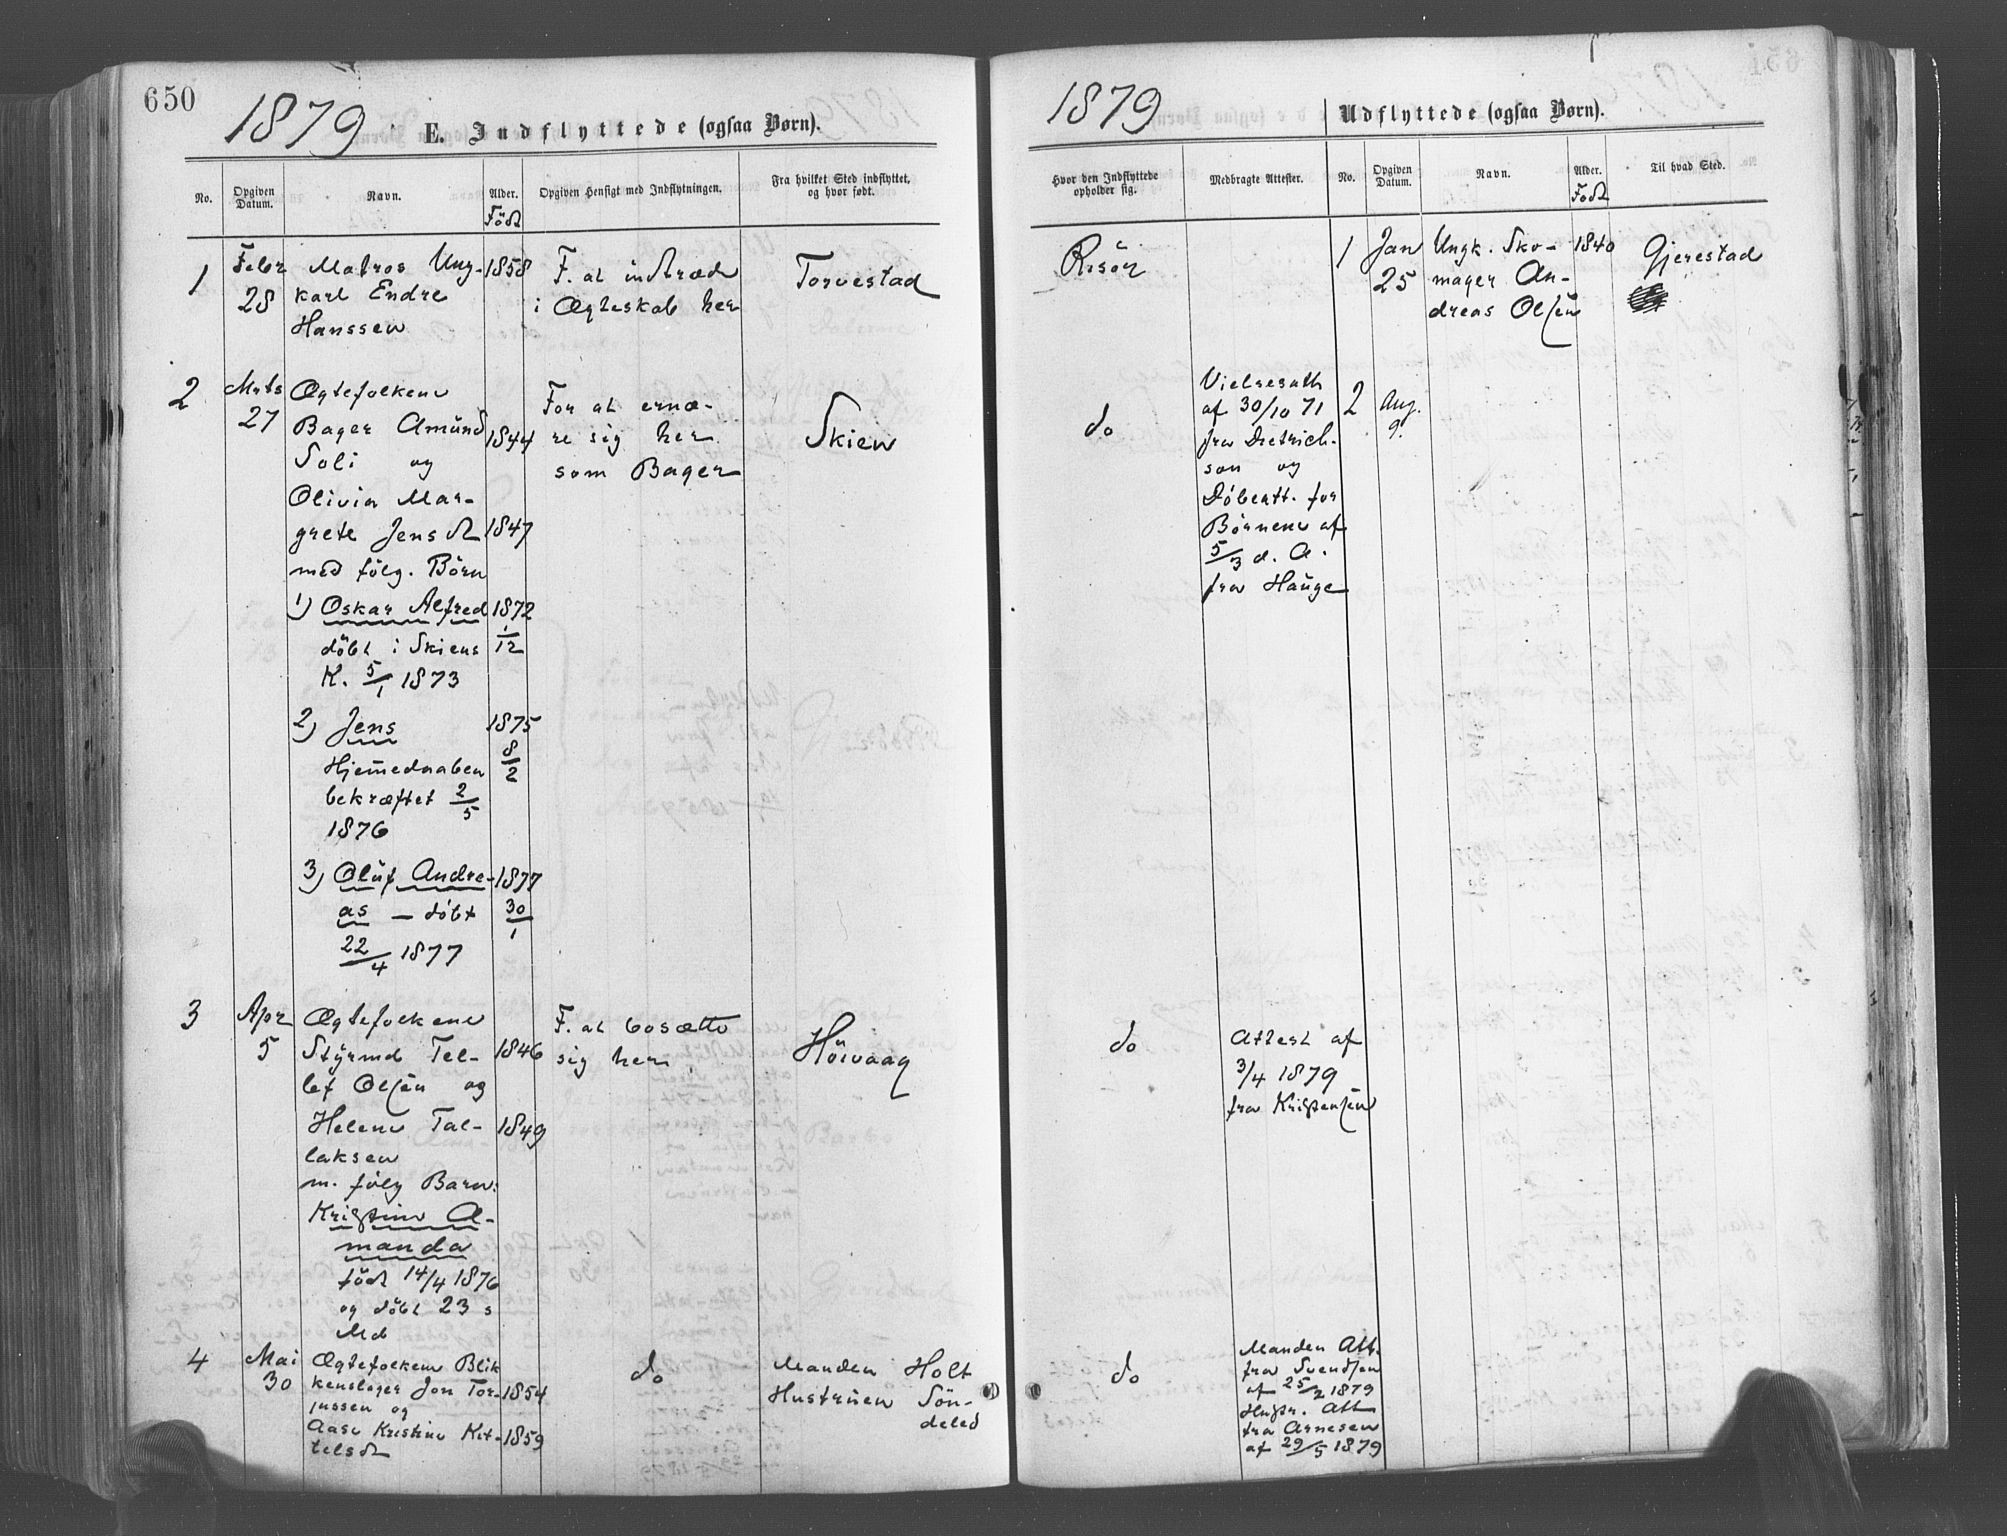 650
1879
E. Indflyttede (ogsaa Børn).
No.
Opgiven Datum.
Navn.
Alder.
Född
Opgiven Hensigt med Indflytningen.
Fra hvilket Sted indflyttet, og hvor født.
1
Febr
28
Matros Ung-
karl Endre
Hanssen
1858
F. at indträde
i Ægteskab her
Torvestad
2
Mrts
27
Ægtefolkene
Bager Amünd
Soli og
1844
Olivia Mar-
grete Jensd
1847
med fölg. Börn
1) Oskar Alfred
1872
1/12
döbt i Skiens
K. 5/1 1873
2) Jens
1875
8/2
Hjemmedaaben
bekræftet 2/5
1876
3) Olüf Andre-
1877
as – döbt
30/1
22/4 1877
For at ernæ-
re sig her
som Bager
Skien
3
Apr
5
Ægtefolkene
Styrmd Tel-
1846
lef Olsen og
Helene Tal-
1849
laksen
m. fölg Barn:
Kristine A-
manda
född 14/4 1876
og döbt 23 s
Md
F. at bosætte
sig her
Höivaag
4
Mai
30
Ægtefolkene Blik
kenslager Jon Tor-
1854
jussen og
Aase Kristine Kit-
1859
telsd
do
Manden Holt
Hustrüen Sön-
deled
1879
Udflyttede (ogsaa Børn).
Hvor den Indflyttede opholder sig.
Medbragte Attester.
No.
Opgiven Datum.
Navn.
Alder.
Född
Til hvad Sted.
Risör
1
Jan
25
Ungk. Sko-
mager An-
dreas Olsen
1840
Gjerestad
do
Vielsesatt
af 30/10 71
fra Dietrich-
son og
Döbeatt. for
Börnene af
5/3 d. A.
fra Hauge
2
Aug.
9.
do
Attest af
3/4 1879
fra Kristensen
do
Manden Att.
fra Svendsen
af 25/2 1879
Hustr. Att
fra Arnesen
af 29/5 1879